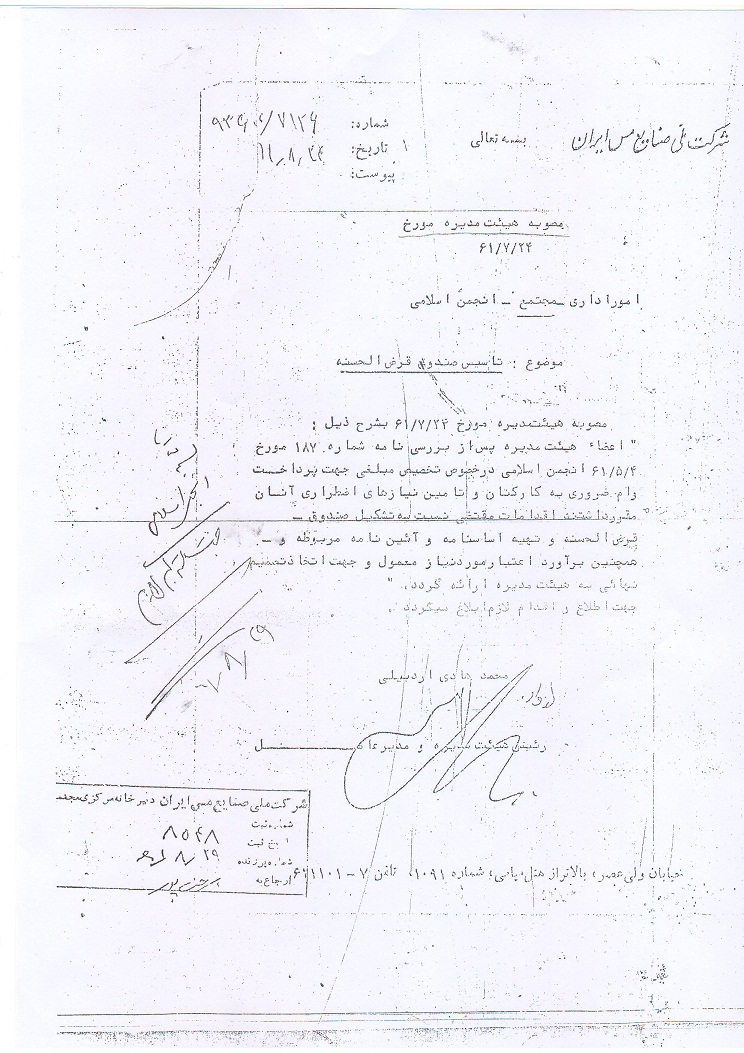 شرکت ملی صنایع مس ایران
بسمه تعالی
شماره: ۷۱۲۶
تاریخ:
پیوست:
مصوبه هیئت مدیره مورخ
۶۱/۷/۲۴
امور اداری - مجتمع - انجمن اسلامی
موضوع : تاسیس صندوق قرض الحسنه
مصوبه هیئت مدیره مورخ ۶۱/۷/۲۴ بشرح ذیل :
" اعضاء هیئت مدیره پس از بررسی نامه شماره ۱۸۷ مورخ
۶۱/۵/۴ انجمن اسلامی درخصوص تخصیص مبلغی جهت پرداخت
وام ضروری به کارکنان و تامین نیازهای اضطراری آنان
مقرر داشتند اقدامات مقتضی نسبت به تشکیل صندوق -
قرض الحسنه و تهیه اساسنامه و آئین نامه مربوطه و -
همچنین برآورد اعتبار مورد نیاز معمول و جهت اتخاذ تصمیم
نهائی به هیئت مدیره ارائه گردد. "
جهت اطلاع و اقدام لازم ابلاغ میگردد .
محمد هادی اردبیلی
رئیس هیئت مدیره و مدیر عامل
شرکت ملی صنایع مس ایران دبیرخانه مرکزی مجتمع
شماره ثبت ۸۵۴۸
تاریخ ثبت ۶۱/۸/۲۹
شماره پرونده
ارجاع به
خیابان ولی عصر، بالاتر از هتل میامی، شماره ۱۰۹۱، تلفن ۷ - ۶۱۱۱۰۱